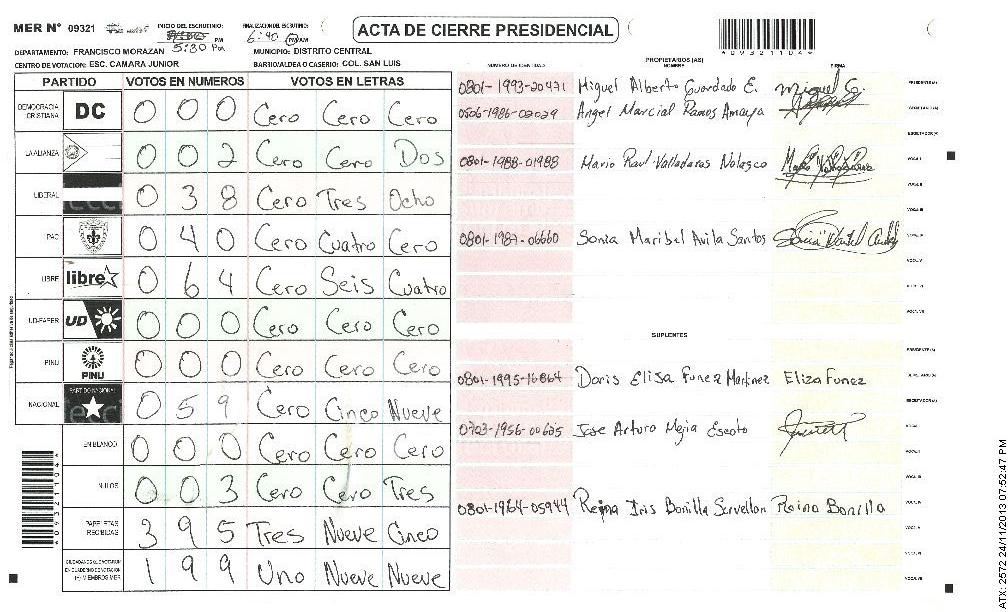 MER Nº 09321
INICIO DEL ESCRUTINIO:
PM
5:30 Pm
FINALIZACION DEL ESCRUTINIO:
6:40 PM
ACTA DE CIERRE PRESIDENCIAL
*09321104*
DEPARTAMENTO: FRANCISCO MORAZAN
MUNICIPIO: DISTRITO CENTRAL
CENTRO DE VOTACION: ESC. CAMARA JUNIOR
BARRIO/ALDEA O CASERIO: COL. SAN LUIS
PARTIDO VOTOS EN NUMEROS VOTOS EN LETRAS
DEMOCRACIA CRISTIANA DC 0 0 0 Cero Cero Cero
LA ALIANZA 0 0 2 Cero Cero Dos
LIBERAL 0 3 8 Cero Tres Ocho
PAC 0 4 0 Cero Cuatro Cero
LIBRE libre 0 6 4 Cero Seis Cuatro
UD-FAPER UD 0 0 0 Cero Cero Cero
PINU PINU 0 0 0 Cero Cero Cero
NACIONAL PARTIDO NACIONAL 0 5 9 Cero Cinco Nueve
EN BLANCO 0 0 0 Cero Cero Cero
NULOS 0 0 3 Cero Cero Tres
PAPELETAS RECIBIDAS 3 9 5 Tres Nueve Cinco
1 9 9 Uno Nueve Nueve
*09321104*
PROPIETARIOS (AS)
NUMERO DE IDENTIDAD NOMBRE FIRMA
0801-1993-20471 Miguel Alberto Guardado E. Miguel G.
0506-1986-02029 Angel Marcial Ramos Amaya
0801-1988-01988 Mario Raul Valladares Nolasco
0801-1987-06660 Sonia Maribel Avila Santos
SUPLENTES
0801-1995-16864 Doris Elisa Funez Martinez Eliza Funez
0703-1956-00605 Jose Arturo Mejia Escoto
0801-1964-05944 Reyna Iris Bonilla Servellon Reina Bonilla
ATX: 2572 24/11/2013 07:52:47 PM